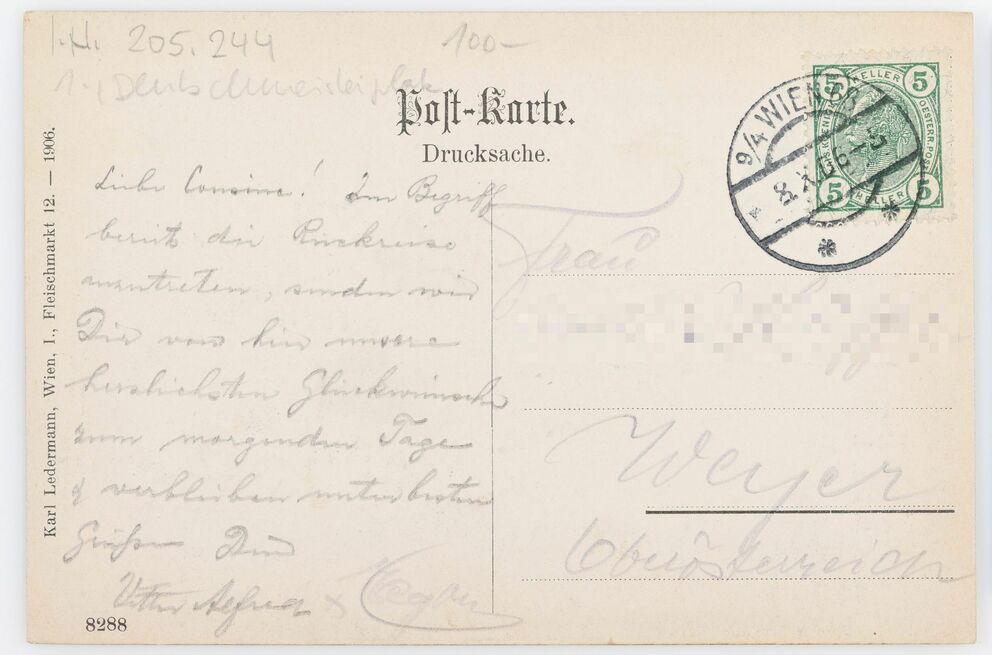 I.N. 205.244
100-
1., Deutschmeisterplatz
Post-Karte.
Drucksache.
Karl Ledermann, Wien, I., Fleischmarkt 12. — 1906.
Liebe Cousine! Im Begriff
bereits die Rückreise
anzutreten, senden wir
Dir von hier unsere
herzlichsten Glückwünsche
zum morgenden Tage
& verbleiben unter besten
Grüßen Dein
Vetter Alfred
8288
9/4 WIEN
8. X. 06
5 HELLER 5
OESTERR. POST
5 HELLER 5
Frau
Weyer
Oberösterreich